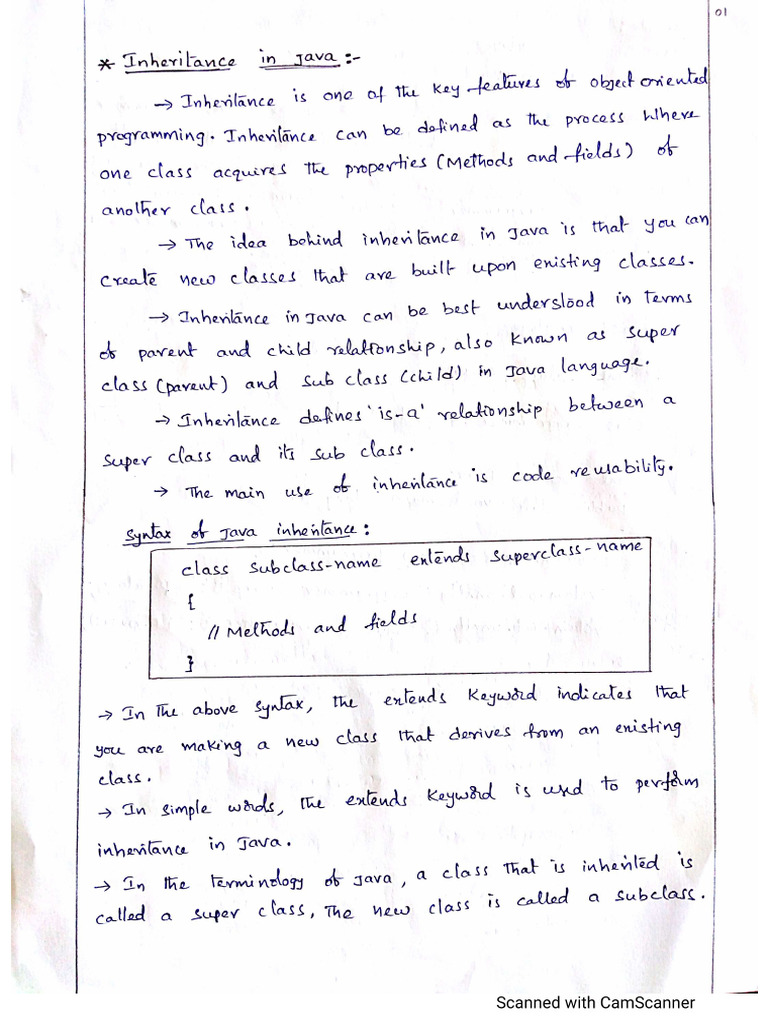 01
* Inheritance in Java:-
→ Inheritance is one of the key features of object oriented
programming. Inheritance can be defined as the process where
one class acquires the properties (Methods and fields) of
another class.
→ The idea behind inheritance in Java is that you can
create new classes that are built upon existing classes.
→ Inheritance in Java can be best understood in terms
of parent and child relationship, also known as super
class (parent) and sub class (child) in Java language.
→ Inheritance defines 'is-a' relationship between a
super class and its sub class.
→ The main use of inheritance is code reusability.
Syntax of Java inheritance:
class Subclass-name extends Superclass-name
{
// Methods and fields
}
→ In the above syntax, the extends keyword indicates that
you are making a new class that derives from an existing
class.
→ In simple words, the extends keyword is used to perform
inheritance in Java.
→ In the terminology of Java, a class that is inherited is
called a super class, the new class is called a subclass.
Scanned with CamScanner